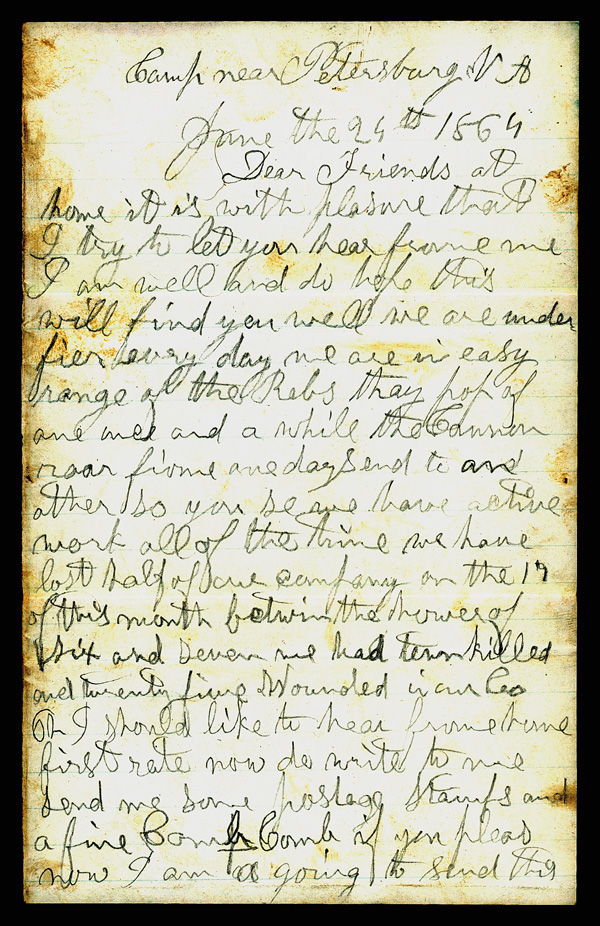 Camp near Petersburg V A
June the 24th 1864
Dear Friends at
home it is with plasure that
I try to let you hear frome me
I am well and do hope this
will find you well we are under
fier every day we are in easy
range of the Rebs thay pop of
one and a while the Cannon
roar frome one day send to ane
other so you se we have active
work all of the time we have
lost half of our company on the 17
of this month betwin the howers of
six and seven we had tenn killed
and twenty five Wounded in our Co
Oh I should like to hear frome home
first rate now do write to me
send me some postage stamps and
a fine Comb Comb if you pleas
now I am a going to send this